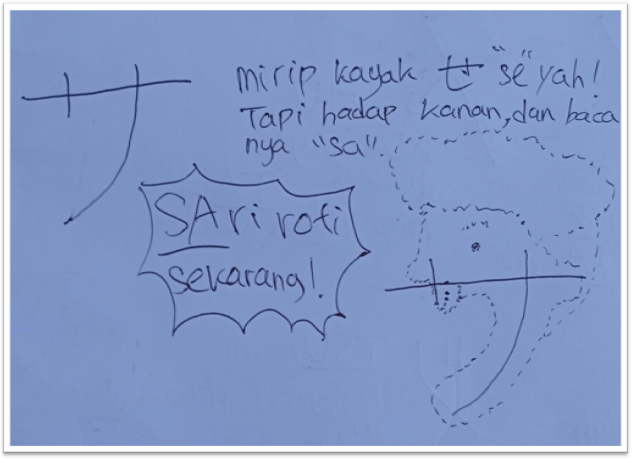 サ
mirip kayak せ "se" yah!
Tapi hadap kanan, dan baca
nya "sa".
SAri roti
sekarang!
サ